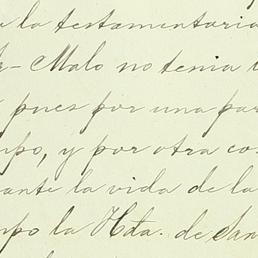 a la testamentaria
r - Malo no tenia
pues por una par
mpo, y por otra co
ante la vida de la
mpo la Hda. de San